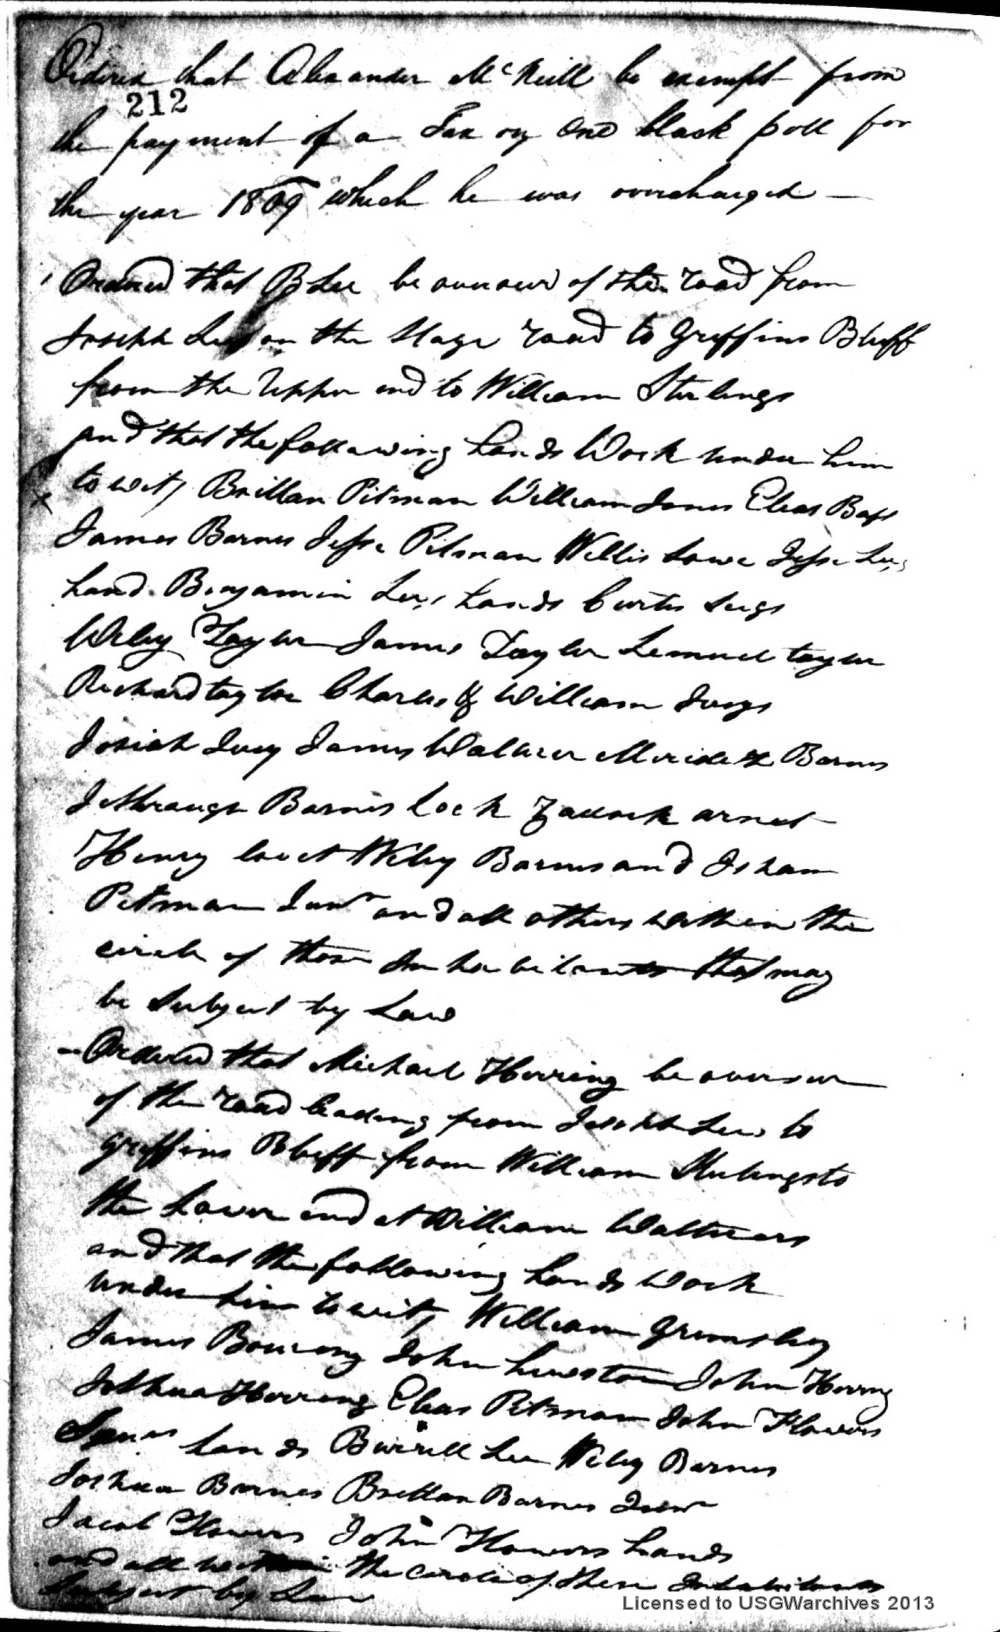 Ordered that Alexander McNeill be exempt from
212
the payment of a Tax on one black poll for
the year 1809 which he was overcharged
Ordered that B Lee be overseer of the road from
Joseph Lees on the Stage road to Griffins Bluff
from the Upper end to William Sterlings
and that the following hands Work under him
to wit, Brittan Pitman William Jones Elias Bass
James Barnes Jesse Pitman Willis Lowe Jesse Lees
hand Benjamin Lees hands Curtis
Wiley Taylor James Taylor Lemuel taylor
Richard taylor Charles & William Iveys
Josiah Ivey James Walters Barnes
Barnes Lock Zadock arnet
Henry Wiley Barnes and Isham
Pitman Junr and all others within the
circle of those Inhabitants that may
be Subject by Law
Ordered that Michael Herring be overseer
of the road leading from Joseph Lees to
Griffins Bluff from William Sterlings to
the Lower end at William
and that the following hands Work
under him to wit, William Grimsley
James John John Herring
Joshua Herring Elias Pitman John Flowers
hands Burrell Lee Wiley Barnes
Joshua Barnes Brittan Barnes Junr
Jacob Flowers John Flowers hands
and all within the circle of these Inhabitants
Subject by Law
Licensed to USGWarchives 2013